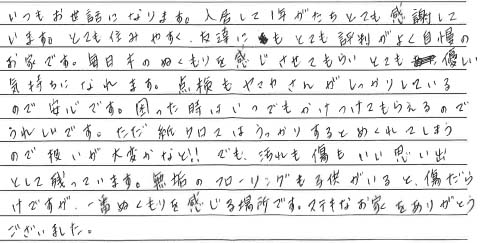 いつもお世話になります。入居して1年がたちとても感謝して
います。とても住みやすく、友達にもとても評判がよく自慢の
お家です。毎日木のぬくもりを感じさせてもらいとても優しい
気持ちになれます。点検もヤマサさんがしっかりしている
ので安心です。困った時はいつでもかけつけてもらえるので
うれしいです。ただ紙クロスはうっかりするとめくれてしまう
ので扱いが大変かなと!! でも、汚れも傷もいい思い出
として残っています。無垢のフローリングも子供がいると、傷だら
けですが、一番ぬくもりを感じる場所です。ステキなお家をありがとう
ございました。